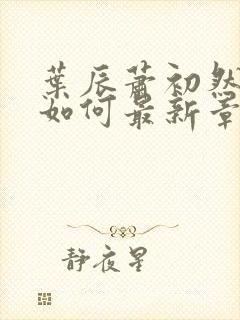 葉辰蕭初然
如何最新章
靜夜星